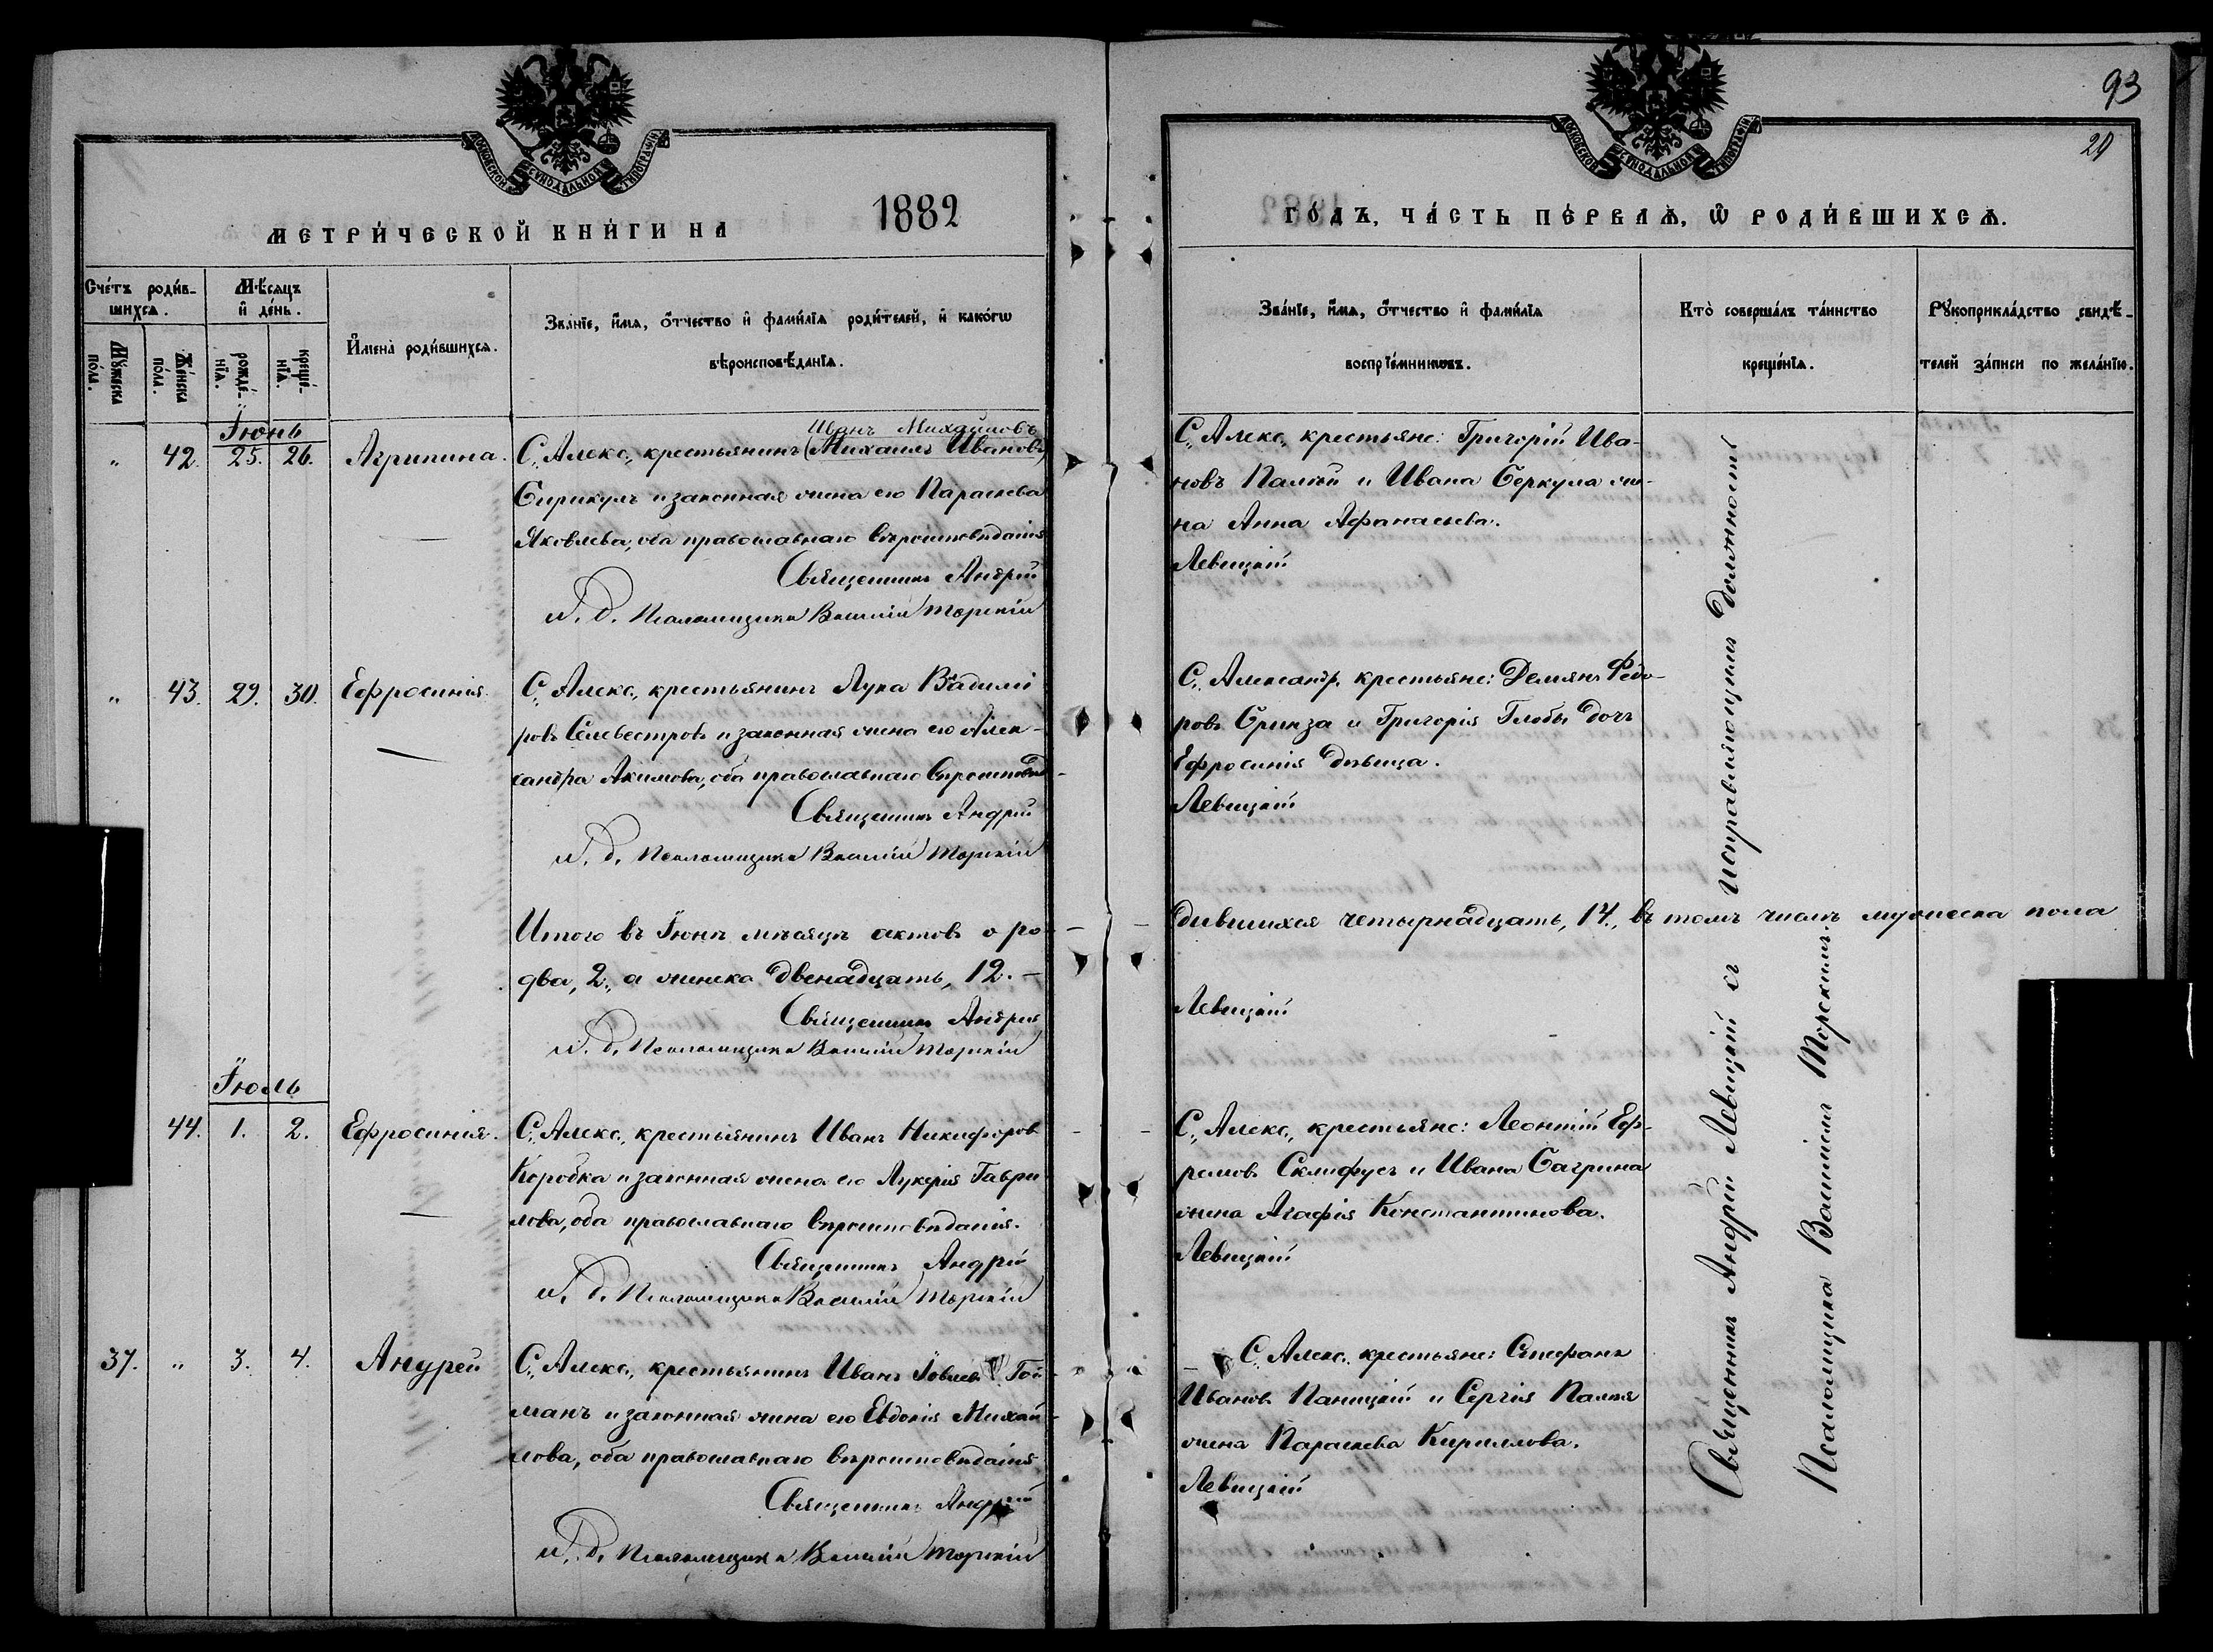 93
29
МОСКОВСКОЙ СѴНОДАЛЬНОЙ ТИПОГРАФІИ
МОСКОВСКОЙ СѴНОДАЛЬНОЙ ТИПОГРАФІИ
МЕТРИ́ЧЕСКОЙ КНИ́ГИ НА 1882
ГО́ДЪ, ЧА́СТЬ ПЕ́РВАѦ, Ѿ РОДИ́ВШИХСѦ.
Сче́тъ роди́в-
шихсѧ.
Му́жеска по́ла.
Же́нска по́ла.
Мѣ́сѧцъ
и҆ де́нь.
рожде́-
нїѧ.
креще́-
нїѧ.
И҆мена̀ роди́вшихсѧ.
Зва́нїе, и҆́мѧ, ѻ҆́тчество и҆ фами́лїѧ роди́телей, и҆ како́гѡ
вѣроисповѣ́данїѧ.
Зва́нїе, и҆́мѧ, ѻ҆́тчество и҆ фами́лїѧ
воспрїе́мникѡвъ.
Кто̀ соверша́лъ та́инство
креще́нїѧ.
Рꙋкоприкла́дство свидѣ́-
телей за́писи по жела́нїю.
Іюнь
" 42. 25. 26. Агрипина.
Иванъ Михайловъ
С., Алекс., крестьянинъ (Михаилъ Ивановъ)
Сирикулъ и законная жена его Параскева
Яковлева, оба православнаго вѣроисповѣданія
Священникъ Андрей
И. д. Псаломщика Василій Торскій
С., Алекс., крестьяне: Григорій Ива-
новъ Палій и Ивана Серкула же-
на Анна Афанасьева.
Левицкій
" 43. 29. 30. Ефросинія.
С., Алекс., крестьянинъ Лука
ровъ Селевестровъ и законная жена его Алек-
сандра Акимова, оба православнаго вѣроисповѣд-
Священникъ Андрей
И. д. Псаломщика Василій Торскій
С., Александр. крестьяне: Демянъ Федо-
ровъ Бринза и Григорія Глобы дочь
Ефросинія дѣвица.
Левицкій
Итого въ Іюнѣ мѣсяцѣ актовъ о ро-
дившихся четырнадцать, 14., въ томъ числѣ мужеска пола
два, 2., а женска двенадцать, 12. –
Священникъ Андрей
Левицкій
И. д. Псаломщика Василій Торскій
Іюль
44. 1. 2. Ефросинія.
С., Алекс., крестьянинъ Иванъ Никифоровъ
Коробка и законная жена его Лукерія Гаври-
лова, оба православнаго вѣроисповѣданія.
Священникъ Андрей
И. д. Псаломщика Василій Торскій
С., Алекс., крестьяне: Леонтій Еф-
ремовъ Склифусъ и Ивана Сагрина
жена Агафія Константинова.
Левицкій
37. " 3. 4. Андрей
С., Алекс., крестьянинъ Иванъ Іовлевъ Гой-
манъ и законная жена его Евдокія Михай-
лова, оба православнаго вѣроисповѣданія
Священникъ Андрей
И. д. Псаломщика Василій Торскій
С., Алекс., крестьяне: Стефанъ
Ивановъ Паницкій и Сергія Палія
жена Параскева Кириллова.
Левицкій
Священникъ Андрей Левицкій съ исправляющимъ должность
Псаломщика Василіемъ Торскимъ.